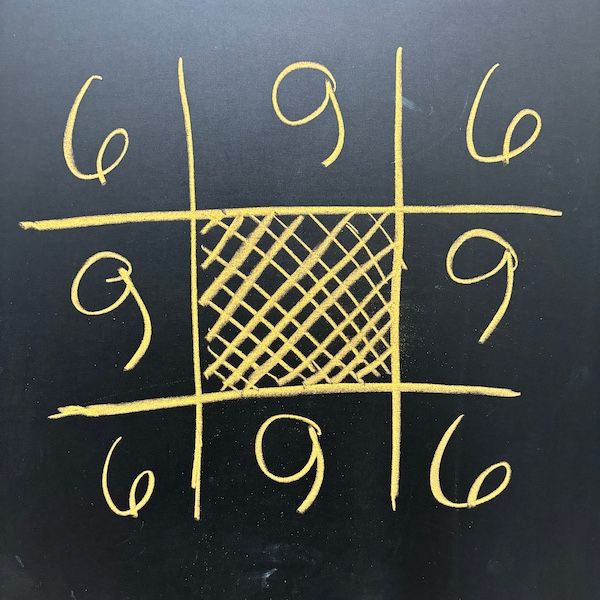 6 9 6
9 9
6 9 6